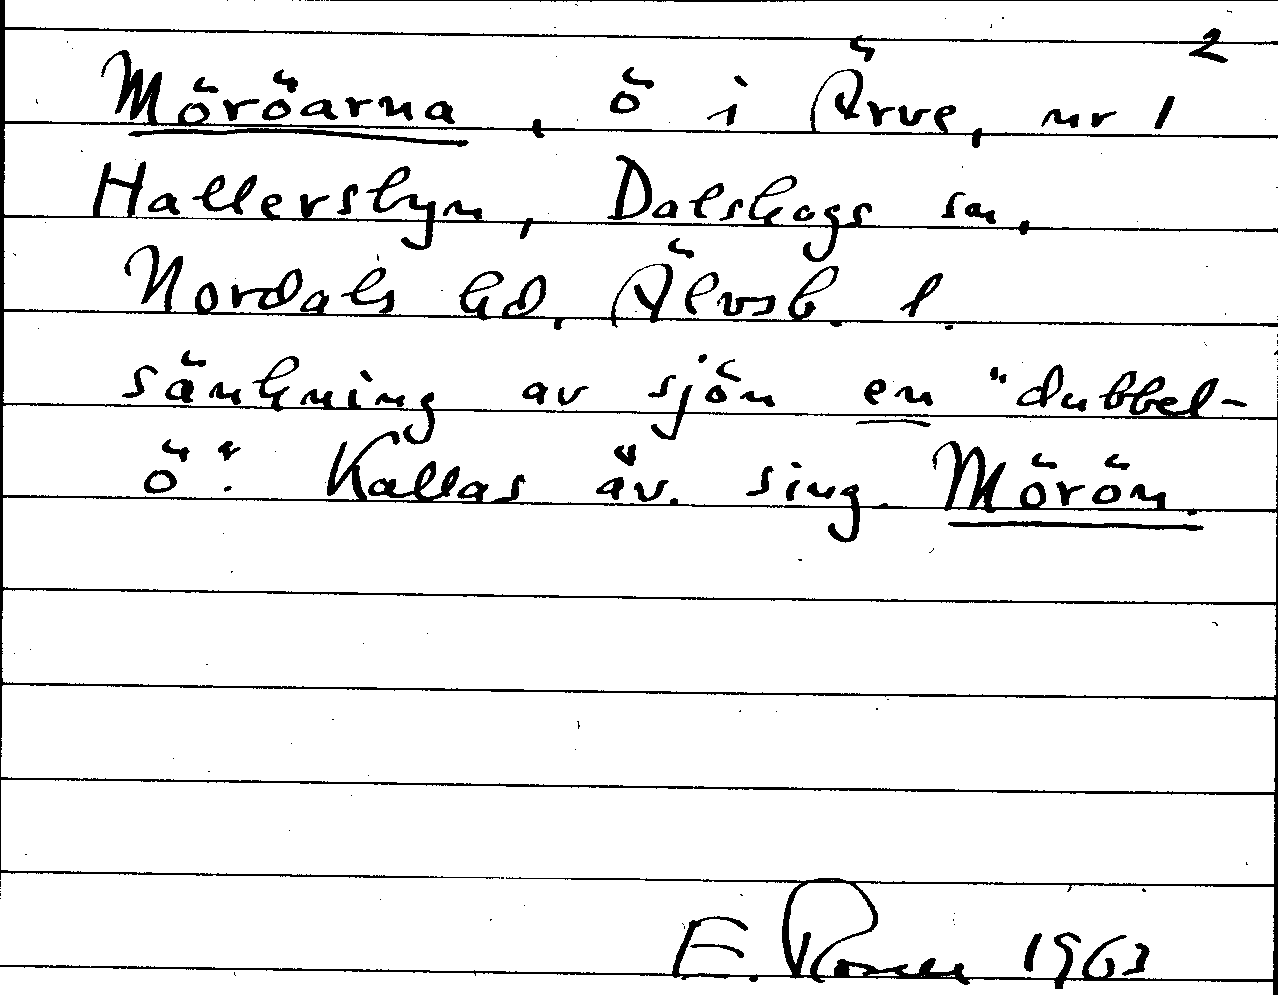 2
Möröarna, ö i Ärve, nr 1
Hallersbyn, Dalskogs sn,
Nordals hd, Älvsb. l.
sänkning av sjön en "dubbel-
ö". Kallas äv. sing. Mörön.
E. Rosell 1963